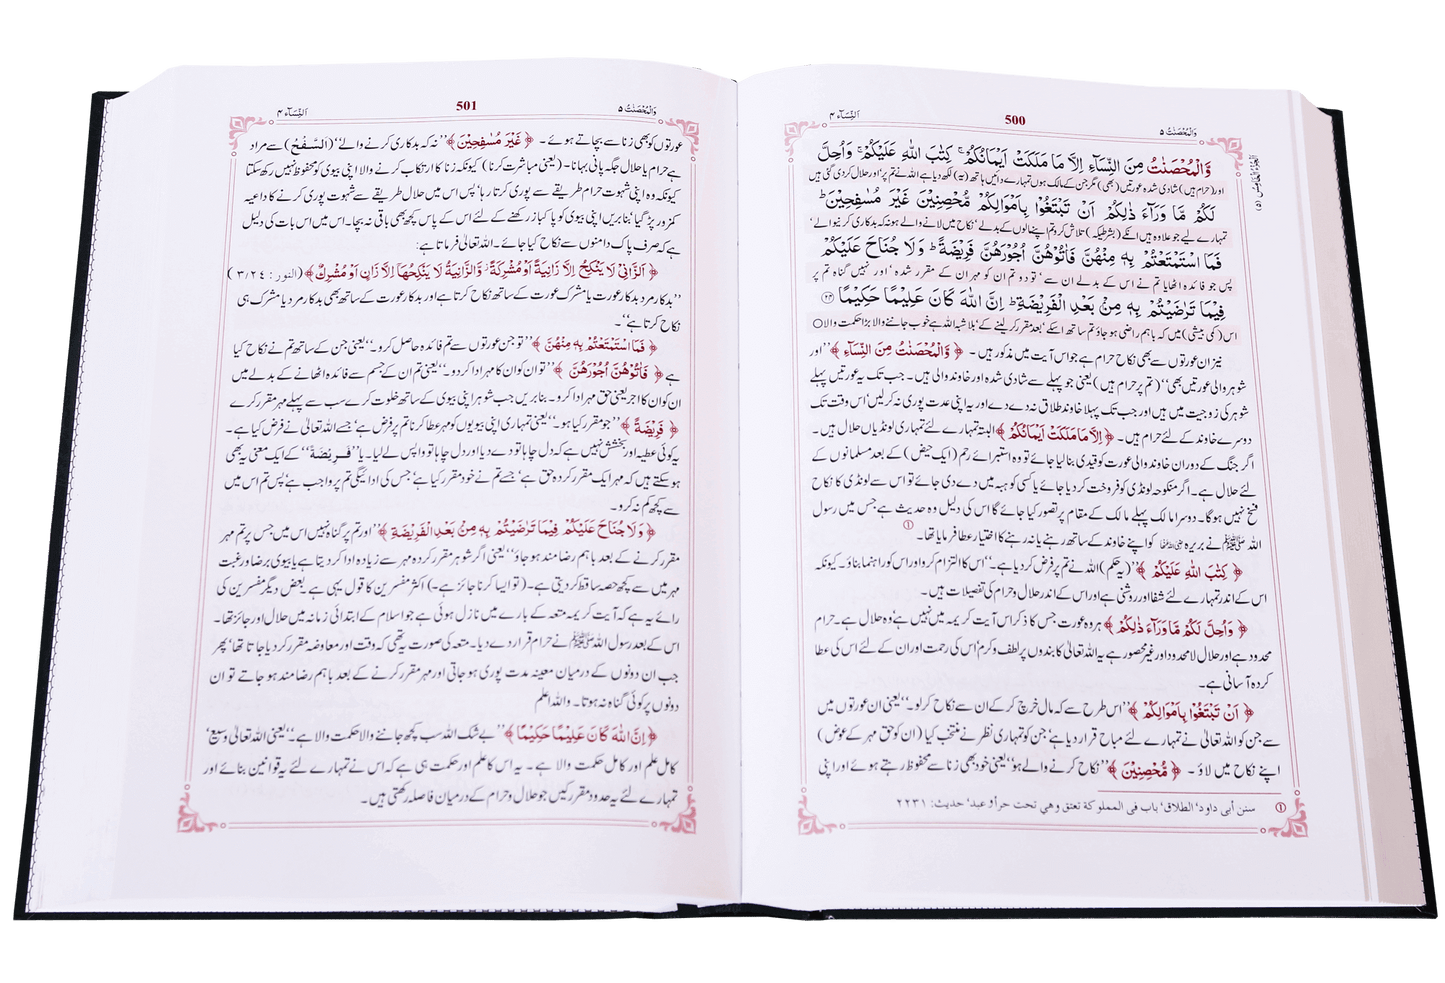 اَلنِّسَآء ۴
500
وَالْمُحْصَنٰتُ ۵
وَّالْمُحْصَنٰتُ مِنَ النِّسَآءِ اِلَّا مَا مَلَكَتْ اَيْمَانُكُمْ ۚ كِتٰبَ اللّٰهِ عَلَيْكُمْ ۚ وَاُحِلَّ
اور (حرام ہیں) شادی شدہ عورتیں (بھی) مگر جن کے مالک ہوں تمہارے دائیں ہاتھ (یہ) لکھ دیا ہے اللہ نے تم پر‘ اور حلال کر دی گئی ہیں
لَكُمْ مَّا وَرَآءَ ذٰلِكُمْ اَنْ تَبْتَغُوْا بِاَمْوَالِكُمْ مُّحْصِنِيْنَ غَيْرَ مُسٰفِحِيْنَ ؕ
تمہارے لیے جو علاوہ ہیں انکے (بشرطیکہ) تلاش کرو تم اپنے مالوں کے بدلے‘ نکاح میں لانے والے ہو نہ کہ بدکاری کرنیوالے‘
فَمَا اسْتَمْتَعْتُمْ بِهٖ مِنْهُنَّ فَاٰتُوْهُنَّ اُجُوْرَهُنَّ فَرِيْضَةً ؕ وَلَا جُنَاحَ عَلَيْكُمْ
پس جو فائدہ اٹھایا تم نے اس کے بدلے ان سے‘ تو دو تم ان کو مہر ان کے مقرر شدہ‘ اور نہیں گناہ تم پر
فِيْمَا تَرٰضَيْتُمْ بِهٖ مِنْۢ بَعْدِ الْفَرِيْضَةِ ؕ اِنَّ اللّٰهَ كَانَ عَلِيْمًا حَكِيْمًا ۲۴
اس (کمی بیشی) میں کہ باہم راضی ہو جاؤ تم ساتھ اسکے‘ بعد مقرر کر لینے کے‘ بلاشبہ اللہ ہے خوب جاننے والا بڑا حکمت والا ○
نیز ان عورتوں سے بھی نکاح حرام ہے جو اس آیت میں مذکور ہیں۔ ﴿ وَّالْمُحْصَنٰتُ مِنَ النِّسَآءِ ﴾ ’’اور
شوہر والی عورتیں بھی‘‘ (تم پر حرام ہیں) یعنی جو پہلے سے شادی شدہ اور خاوند والی ہیں۔ جب تک یہ عورتیں پہلے
شوہر کی زوجیت میں ہیں اور جب تک پہلا خاوند طلاق نہ دے دے اور یہ اپنی عدت پوری نہ کر لیں‘ اس وقت تک
دوسرے خاوند کے لئے حرام ہیں۔ ﴿ اِلَّا مَا مَلَكَتْ اَيْمَانُكُمْ ﴾ البتہ تمہارے لئے تمہاری لونڈیاں حلال ہیں۔
اگر جنگ کے دوران خاوند والی عورت کو قیدی بنا لیا جائے تو وہ استبرائے رحم (ایک حیض) کے بعد مسلمانوں کے
لئے حلال ہے۔ اگر منکوحہ لونڈی کو فروخت کر دیا جائے یا کسی کو ہبہ میں دے دی جائے تو اس سے لونڈی کا نکاح
فسخ نہیں ہوگا۔ دوسرا مالک پہلے مالک کے مقام پر تصور کیا جائے گا اس کی دلیل وہ حدیث ہے جس میں رسول
اللہ ﷺ نے بریرہ رضی اللہ عنہا کو اپنے خاوند کے ساتھ رہنے یا نہ رہنے کا اختیار عطا فرمایا تھا۔ ①
﴿ كِتٰبَ اللّٰهِ عَلَيْكُمْ ﴾ ’’(یہ حکم) اللہ نے تم پر فرض کر دیا ہے۔‘‘ اس کا التزام کرو اور اس کو راہنما بناؤ۔ کیونکہ
اس کے اندر تمہارے لئے شفا اور روشنی ہے اور اس کے اندر حلال و حرام کی تفصیلات ہیں۔
﴿ وَاُحِلَّ لَكُمْ مَّا وَرَآءَ ذٰلِكُمْ ﴾ ہر وہ عورت جس کا ذکر اس آیت کریمہ میں نہیں ہے‘ وہ حلال ہے۔ حرام
محدود ہے اور حلال لا محدود اور غیر محصور ہے یہ اللہ تعالیٰ کا بندوں پر لطف و کرم‘ اس کی رحمت اور ان کے لئے اس کی عطا
کردہ آسانی ہے۔
﴿ اَنْ تَبْتَغُوْا بِاَمْوَالِكُمْ ﴾ ’’اس طرح سے کہ مال خرچ کر کے ان سے نکاح کر لو۔‘‘ یعنی ان عورتوں میں
سے جن کو اللہ تعالیٰ نے تمہارے لئے مباح قرار دیا ہے‘ جن کو تمہاری نظر نے منتخب کیا (ان کو حق مہر کے عوض)
اپنے نکاح میں لاؤ۔ ﴿ مُّحْصِنِيْنَ ﴾ ’’نکاح کرنے والے ہو‘‘ یعنی خود بھی زنا سے محفوظ رہتے ہوئے اور اپنی
① سنن أبی داود‘ الطلاق‘ باب فی المملوكة تعتق وهي تحت حر أو عبد‘ حدیث: ۲۲۳۱
اَلنِّسَآء ۴
501
وَالْمُحْصَنٰتُ ۵
عورتوں کو بھی زنا سے بچاتے ہوئے۔ ﴿ غَيْرَ مُسٰفِحِيْنَ ﴾ ’’نہ کہ بدکاری کرنے والے‘‘ (اَلسَّفْحُ) سے مراد
ہے حرام یا حلال جگہ پانی بہانا۔ (یعنی مباشرت کرنا) کیونکہ زنا کا ارتکاب کرنے والا اپنی بیوی کو محفوظ نہیں رکھ سکتا
کیونکہ وہ اپنی شہوت حرام طریقے سے پوری کرتا رہا‘ پس اس میں حلال طریقے سے شہوت پوری کرنے کا داعیہ
کمزور پڑ گیا‘ بنا بریں اپنی بیوی کو پاکباز رکھنے کے لئے اس کے پاس کچھ بھی باقی نہ بچا۔ اس میں اس بات کی دلیل
ہے کہ صرف پاک دامنوں سے نکاح کیا جائے۔ اللہ تعالیٰ فرماتا ہے:
﴿ اَلزَّانِيْ لَا يَنْكِحُ اِلَّا زَانِيَةً اَوْ مُشْرِكَةً ۫ وَّالزَّانِيَةُ لَا يَنْكِحُهَا اِلَّا زَانٍ اَوْ مُشْرِكٌ ﴾ (النور: ۳/۲۴)
’’بدکار مرد بدکار عورت یا مشرک عورت کے ساتھ نکاح کرتا ہے اور بدکار عورت کے ساتھ بھی بدکار مرد یا مشرک ہی
نکاح کرتا ہے‘‘۔
﴿ فَمَا اسْتَمْتَعْتُمْ بِهٖ مِنْهُنَّ ﴾ ’’تو جن عورتوں سے تم فائدہ حاصل کرو۔‘‘ یعنی جن کے ساتھ تم نے نکاح کیا
ہے ﴿ فَاٰتُوْهُنَّ اُجُوْرَهُنَّ ﴾ ’’تو ان کو ان کا مہر ادا کر دو۔‘‘ یعنی تم ان کے جسم سے فائدہ اٹھانے کے بدلے میں
ان کو ان کا اجر یعنی حق مہر ادا کرو۔ بنا بریں جب شوہر اپنی بیوی کے ساتھ خلوت کرے سب سے پہلے مہر مقرر کرے
﴿ فَرِيْضَةً ﴾ ’’جو مقرر کیا ہو۔‘‘ یعنی تمہاری اپنی بیویوں کو مہر عطا کرنا تم پر فرض ہے‘ جسے اللہ تعالیٰ نے فرض کیا ہے۔
یہ کوئی عطیہ اور بخشش نہیں ہے کہ دل چاہا تو دے دیا اور دل چاہا تو واپس لے لیا۔ یا ’’فَرِيْضَةً‘‘ کے ایک معنی یہ بھی
ہو سکتے ہیں کہ مہر ایک مقرر کردہ حق ہے‘ جسے تم نے خود مقرر کیا ہے‘ جس کی ادائیگی تم پر واجب ہے‘ پس تم اس میں
سے کچھ کم نہ کرو۔
﴿ وَلَا جُنَاحَ عَلَيْكُمْ فِيْمَا تَرٰضَيْتُمْ بِهٖ مِنْۢ بَعْدِ الْفَرِيْضَةِ ﴾ ’’اور تم پر گناہ نہیں اس میں جس پر تم مہر
مقرر کرنے کے بعد باہم رضا مند ہو جاؤ‘‘ یعنی اگر شوہر مقرر کردہ مہر سے زیادہ ادا کر دیتا ہے یا بیوی برضا و رغبت
مہر میں سے کچھ حصہ ساقط کر دیتی ہے۔ (تو ایسا کرنا جائز ہے۔) اکثر مفسرین کا قول یہی ہے بعض دیگر مفسرین کی
رائے یہ ہے کہ آیت کریمہ متعہ کے بارے میں نازل ہوئی ہے جو اسلام کے ابتدائی زمانہ میں حلال اور جائز تھا۔
اس کے بعد رسول اللہ ﷺ نے حرام قرار دے دیا۔ متعہ کی صورت یہ تھی کہ وقت اور معاوضہ مقرر کر دیا جاتا تھا‘ پھر
جب ان دونوں کے درمیان معینہ مدت پوری ہو جاتی اور مہر مقرر کرنے کے بعد باہم رضا مند ہو جاتے تو ان
دونوں پر کوئی گناہ نہ ہوتا۔ واللہ اعلم
﴿ اِنَّ اللّٰهَ كَانَ عَلِيْمًا حَكِيْمًا ﴾ ’’بے شک اللہ سب کچھ جاننے والا حکمت والا ہے۔‘‘ یعنی اللہ تعالیٰ وسیع‘
کامل علم اور کامل حکمت والا ہے۔ یہ اس کا علم اور حکمت ہی ہے کہ اس نے تمہارے لئے یہ قوانین بنائے اور
تمہارے لئے یہ حدود مقرر کیں جو حلال و حرام کے درمیان فاصلہ رکھتی ہیں۔